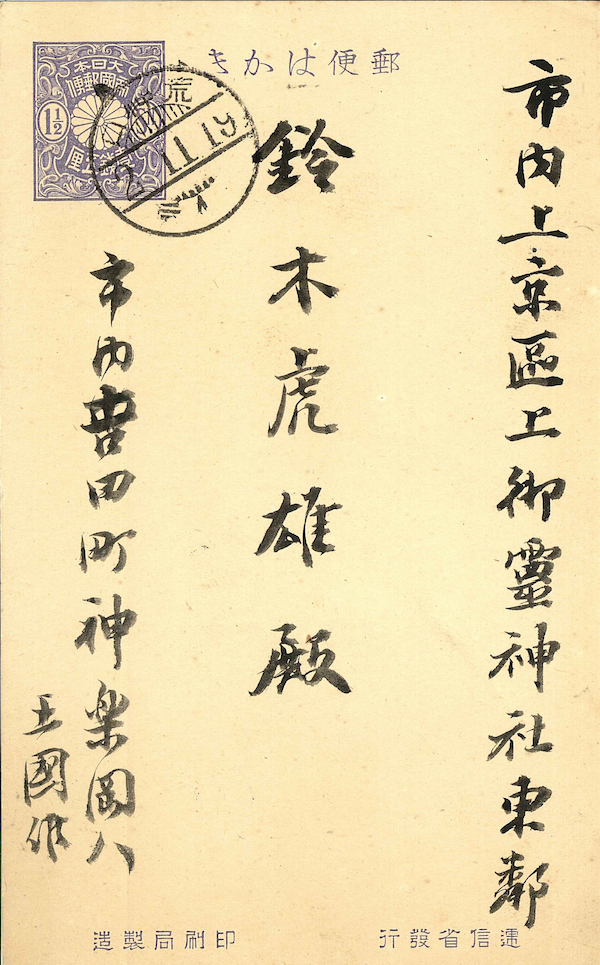 郵便はかき
大日本
帝國郵便
1½
市内上京區上御靈神社東鄰
鈴木虎雄殿
市内吉田町神樂岡八
王國維
遞信省發行
印刷局製造